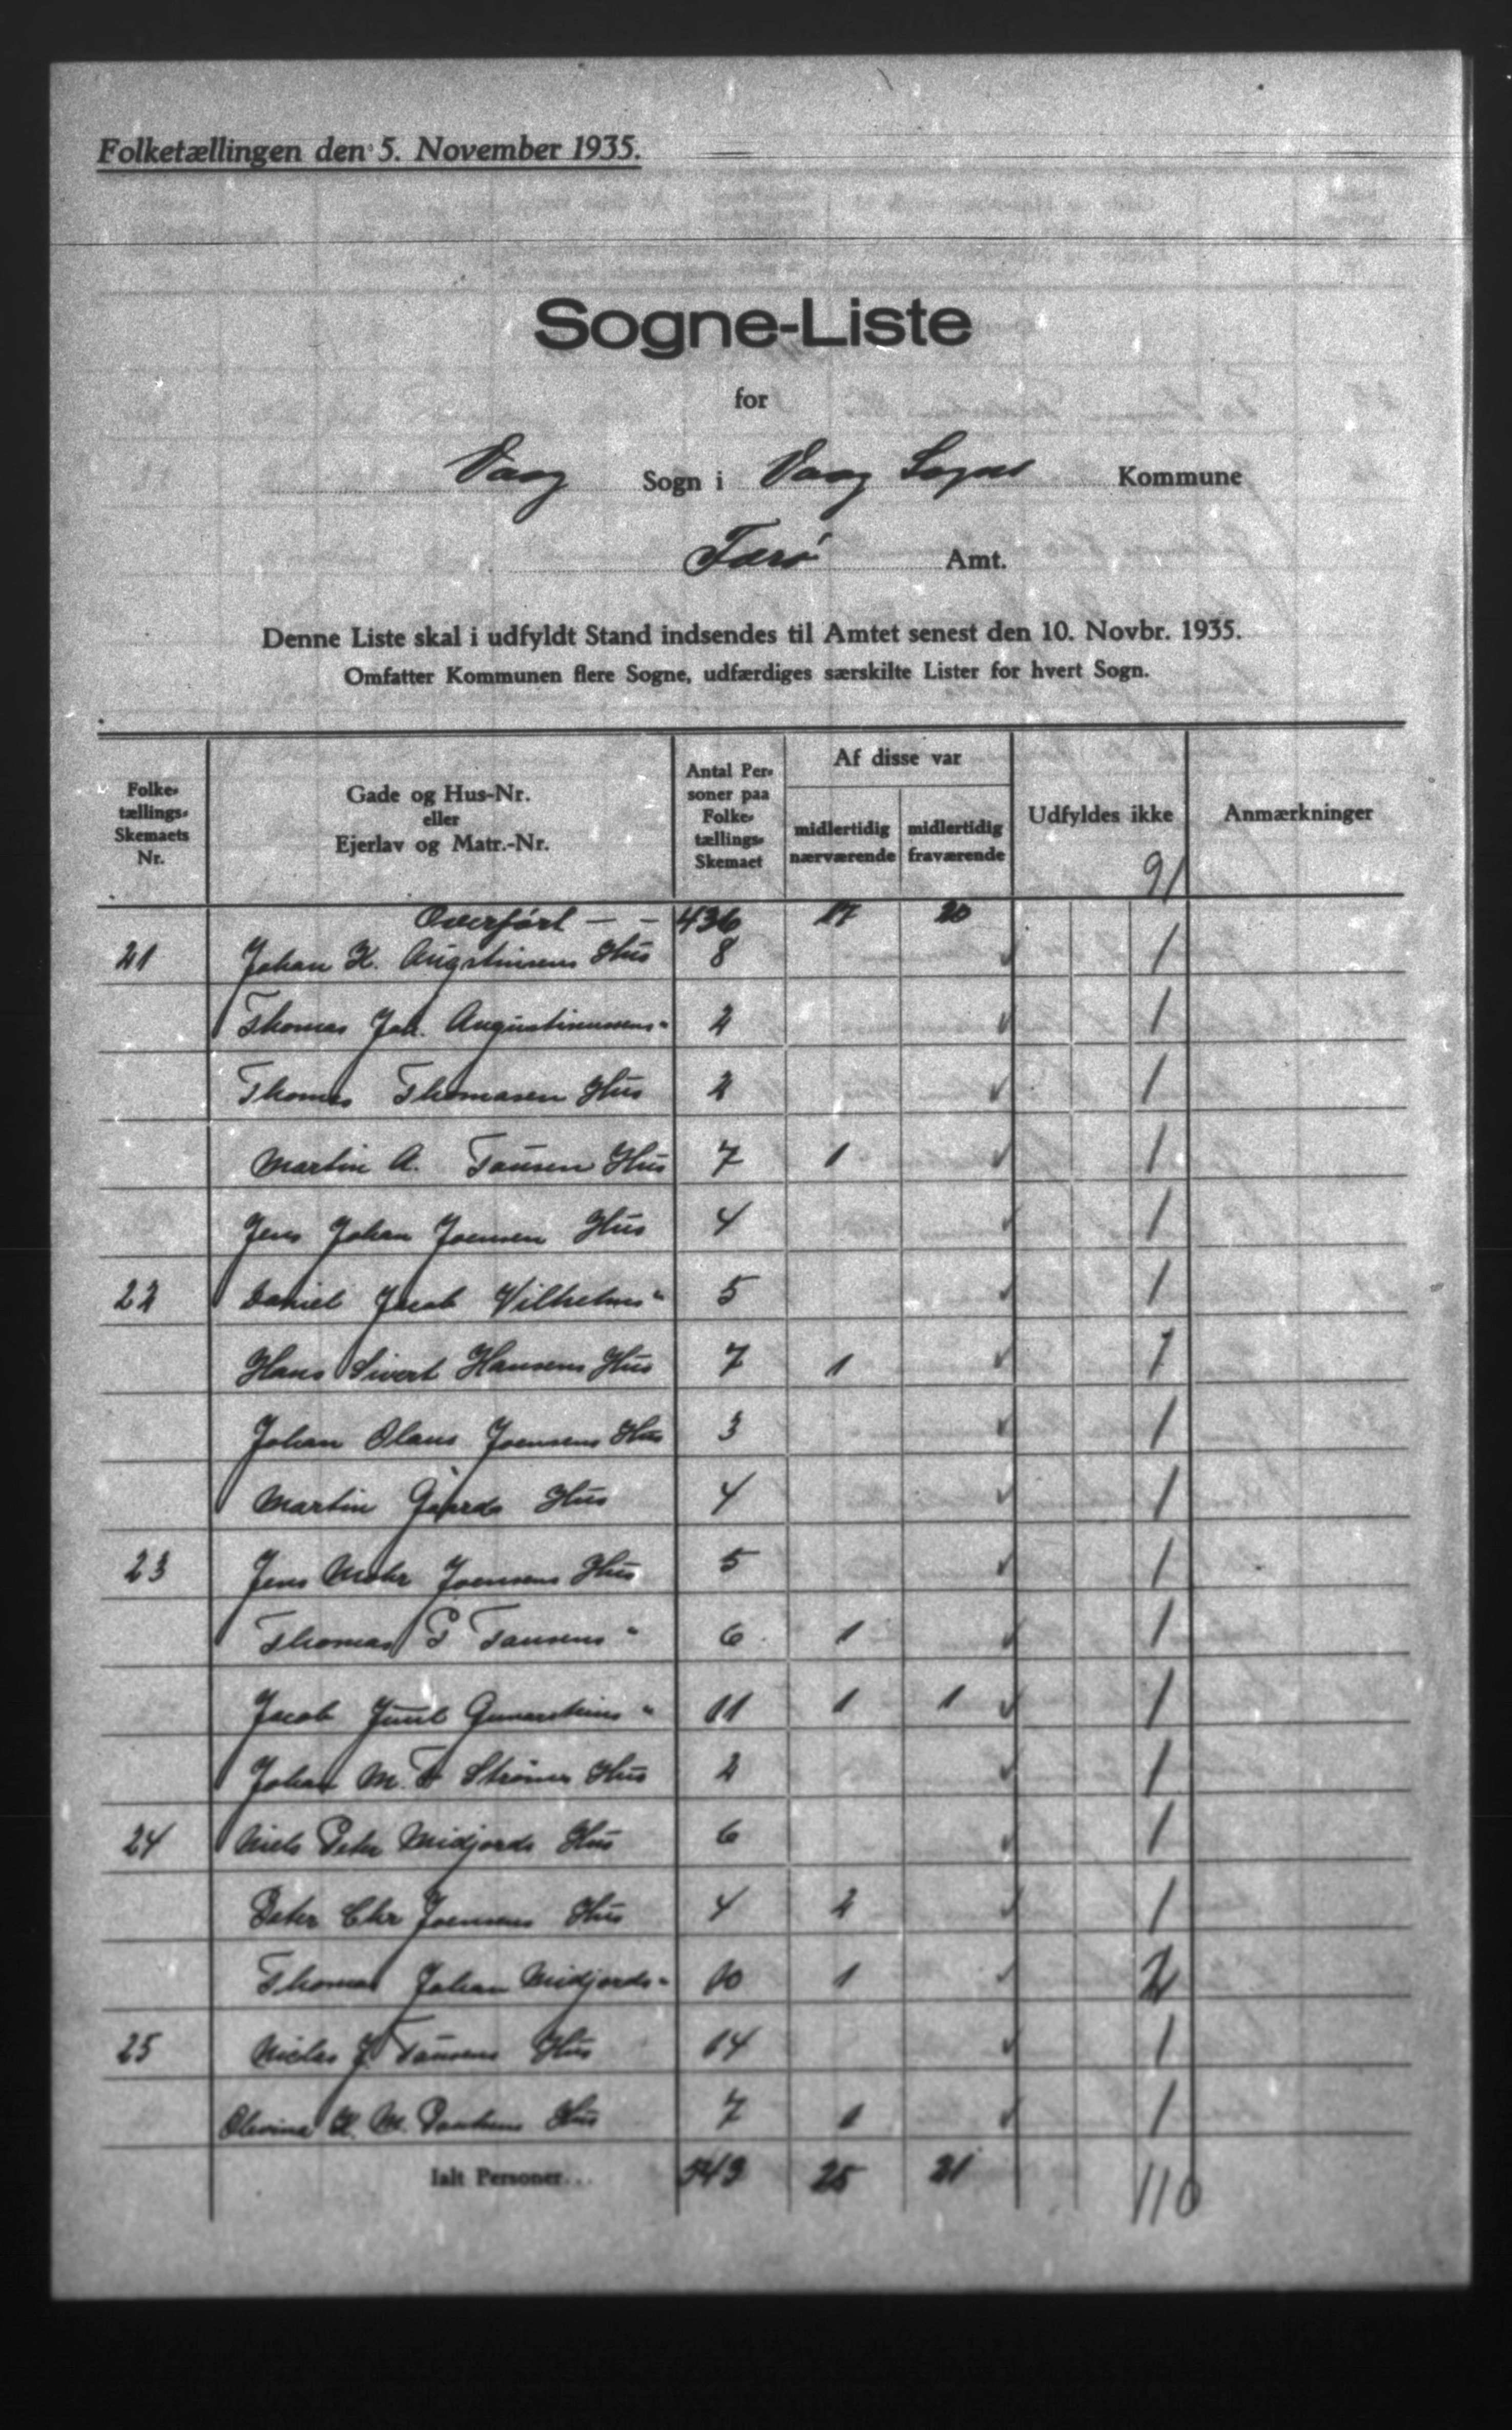 Folketællingen den 5. November 1935.
Sogne-Liste
for
Vaag Sogn i Vaag Sogns Kommune
Færø Amt.
Denne Liste skal i udfyldt Stand indsendes til Amtet senest den 10. Novbr. 1935.
Omfatter Kommunen flere Sogne, udfærdiges særskilte Lister for hvert Sogn.
Folke-
tællings-
Skemaets
Nr.
Gade og Hus-Nr.
eller
Ejerlav og Matr.-Nr.
Antal Per-
soner paa
Folke-
tællings-
Skemaet
Af disse var
midlertidig
nærværende
midlertidig
fraværende
Udfyldes ikke
91
Anmærkninger
Overført - - 436 17 20
21 Johan K. Augustinsens Hus 8 ✓ 1
Thomas Joh. Augustinussens " 2 ✓ 1
Thomas Thomasen Hus 2 ✓ 1
Martin A. Tausen Hus 7 1 ✓ 1
Jens Johan Joensen Hus 4 ✓ 1
22 Daniel Jacob Vilhelms " 5 ✓ 1
Hans Sivert Hansens Hus 7 1 ✓ 1
Johan Olaus Joensens Hus 3 ✓ 1
Martin Gaards Hus 4 ✓ 1
23 Jens Mohr Joensens Hus 5 ✓ 1
Thomas P Tausens " 6 1 ✓ 1
Jacob Juul " 11 1 1 ✓ 1
Johan M. Strøms Hus 2 ✓ 1
24 Niels Peter Midjords Hus 6 ✓ 1
Peter Chr Joensens Hus 4 2 ✓ 1
Thomas Johan Midjords " 10 1 ✓ 2
25 Niclas J. Tausens Hus 14 ✓ 1
Olevine M. Poulsens Hus 7 1 ✓ 1
Ialt Personer... 543 25 21 110